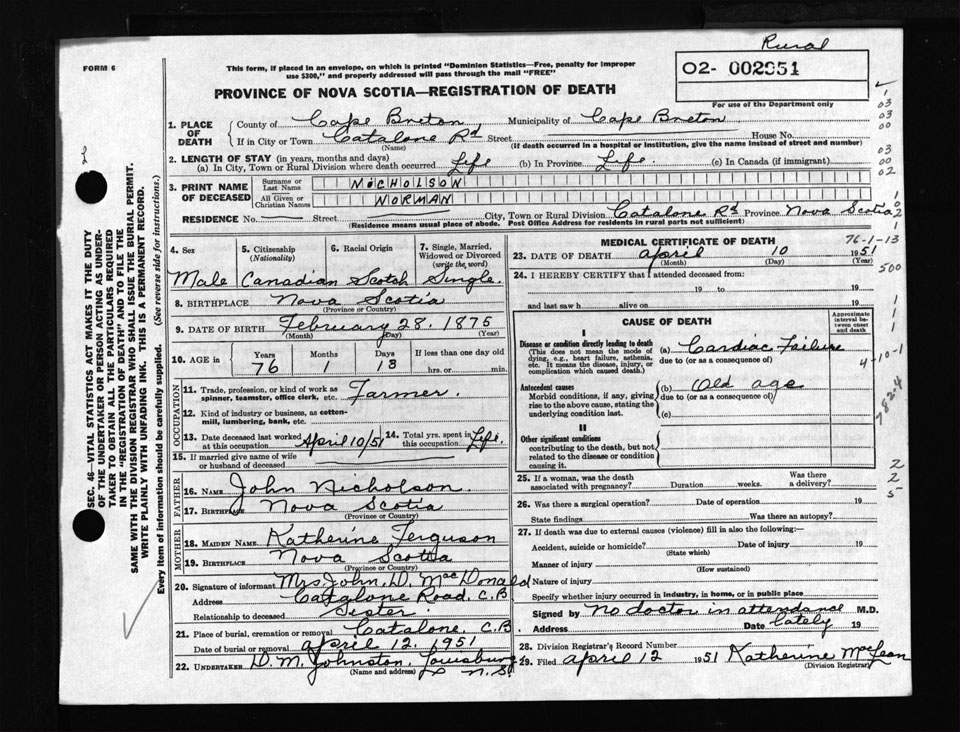 Rural
FORM 6
This form, if placed in an envelope, on which is printed "Dominion Statistics—Free, penalty for improper
use $300," and properly addressed will pass through the mail "FREE"
02- 002951
PROVINCE OF NOVA SCOTIA—REGISTRATION OF DEATH
For use of the Department only
1. PLACE OF DEATH { County of Cape Breton Municipality of Cape Breton
If in City or Town Catalone Rd Street House No.
(Name) (If death occurred in a hospital or institution, give the name instead of street and number)
2. LENGTH OF STAY (in years, months and days)
(a) In City, Town or Rural Division where death occurred Life (b) In Province Life. (c) In Canada (if immigrant)
3. PRINT NAME OF DECEASED { Surname or Last Name NICHOLSON
All Given or Christian Names NORMAN
RESIDENCE No. Street City, Town or Rural Division Catalone Rd Province Nova Scotia
(Residence means usual place of abode. Post Office Address for residents in rural parts not sufficient)
4. Sex 5. Citizenship (Nationality) 6. Racial Origin 7. Single, Married, Widowed or Divorced (write the word)
Male Canadian Scotch Single.
8. BIRTHPLACE Nova Scotia
(Province or Country)
9. DATE OF BIRTH February 28. 1875
(Month) (Day) (Year)
10. AGE IN Years Months Days If less than one day old
76 1 13 hrs. or min.
OCCUPATION
11. Trade, profession, or kind of work as spinner, teamster, office clerk, etc. Farmer.
12. Kind of industry or business, as cotton-mill, lumbering, bank, etc.
13. Date deceased last worked at this occupation April 10/51 14. Total yrs. spent in this occupation Life.
15. If married give name of wife or husband of deceased
FATHER
16. NAME John Nicholson.
17. Birthplace Nova Scotia
(Province or Country)
MOTHER
18. MAIDEN NAME Katherine Ferguson
19. BIRTHPLACE Nova Scotia
(Province or Country)
20. Signature of informant Mrs. John. D. MacDonald
Address Catalone Road. C.B
Relationship to deceased Sister.
21. Place of burial, cremation or removal Catalone. C.B
Date of burial or removal April 12. 1951
22. UNDERTAKER D. M. Johnston, Louisburg
(Name and address) N.S.
MEDICAL CERTIFICATE OF DEATH 76-1-13
23. DATE OF DEATH April 10 1951
(Month) (Day) (Year)
24. I HEREBY CERTIFY that I attended deceased from:
19 to 19
and last saw h alive on 19
CAUSE OF DEATH
Approximate interval between onset and death
I
Disease or condition directly leading to death
(This does not mean the mode of dying, e.g., heart failure, asthenia, etc. It means the disease, injury, or complication which caused death.)
(a) Cardiac Failure
due to (or as a consequence of)
Antecedent causes
Morbid conditions, if any, giving rise to the above cause, stating the underlying condition last.
(b) Old age
due to (or as a consequence of)
(c)
II
Other significant conditions
contributing to the death, but not related to the disease or condition causing it.
25. If a woman, was the death associated with pregnancy? Duration weeks. Was there a delivery?
26. Was there a surgical operation? Date of operation 19
State findings Was there an autopsy?
27. If death was due to external causes (violence) fill in also the following—
Accident, suicide or homicide? Date of injury 19
(State which)
Manner of injury
(How sustained)
Nature of injury
Specify whether injury occurred in industry, in home, or in public place
Signed by No doctor in attendance M.D.
Address Date lately 19
28. Division Registrar's Record Number
29. Filed April 12 1951 Katherine MacLean
(Division Registrar)
1
03
03
00
03
00
02
500
4-10-1
782-4
2
2
5
SEC. 46—VITAL STATISTICS ACT MAKES IT THE DUTY
OF THE UNDERTAKER OR PERSON ACTING AS UNDER-
TAKER TO OBTAIN ALL THE PARTICULARS REQUIRED
IN THE "REGISTRATION OF DEATH" AND TO FILE THE
SAME WITH THE DIVISION REGISTRAR WHO SHALL ISSUE THE BURIAL PERMIT.
WRITE PLAINLY WITH UNFADING INK. THIS IS A PERMANENT RECORD.
Every item of information should be carefully supplied. (See reverse side for instructions.)